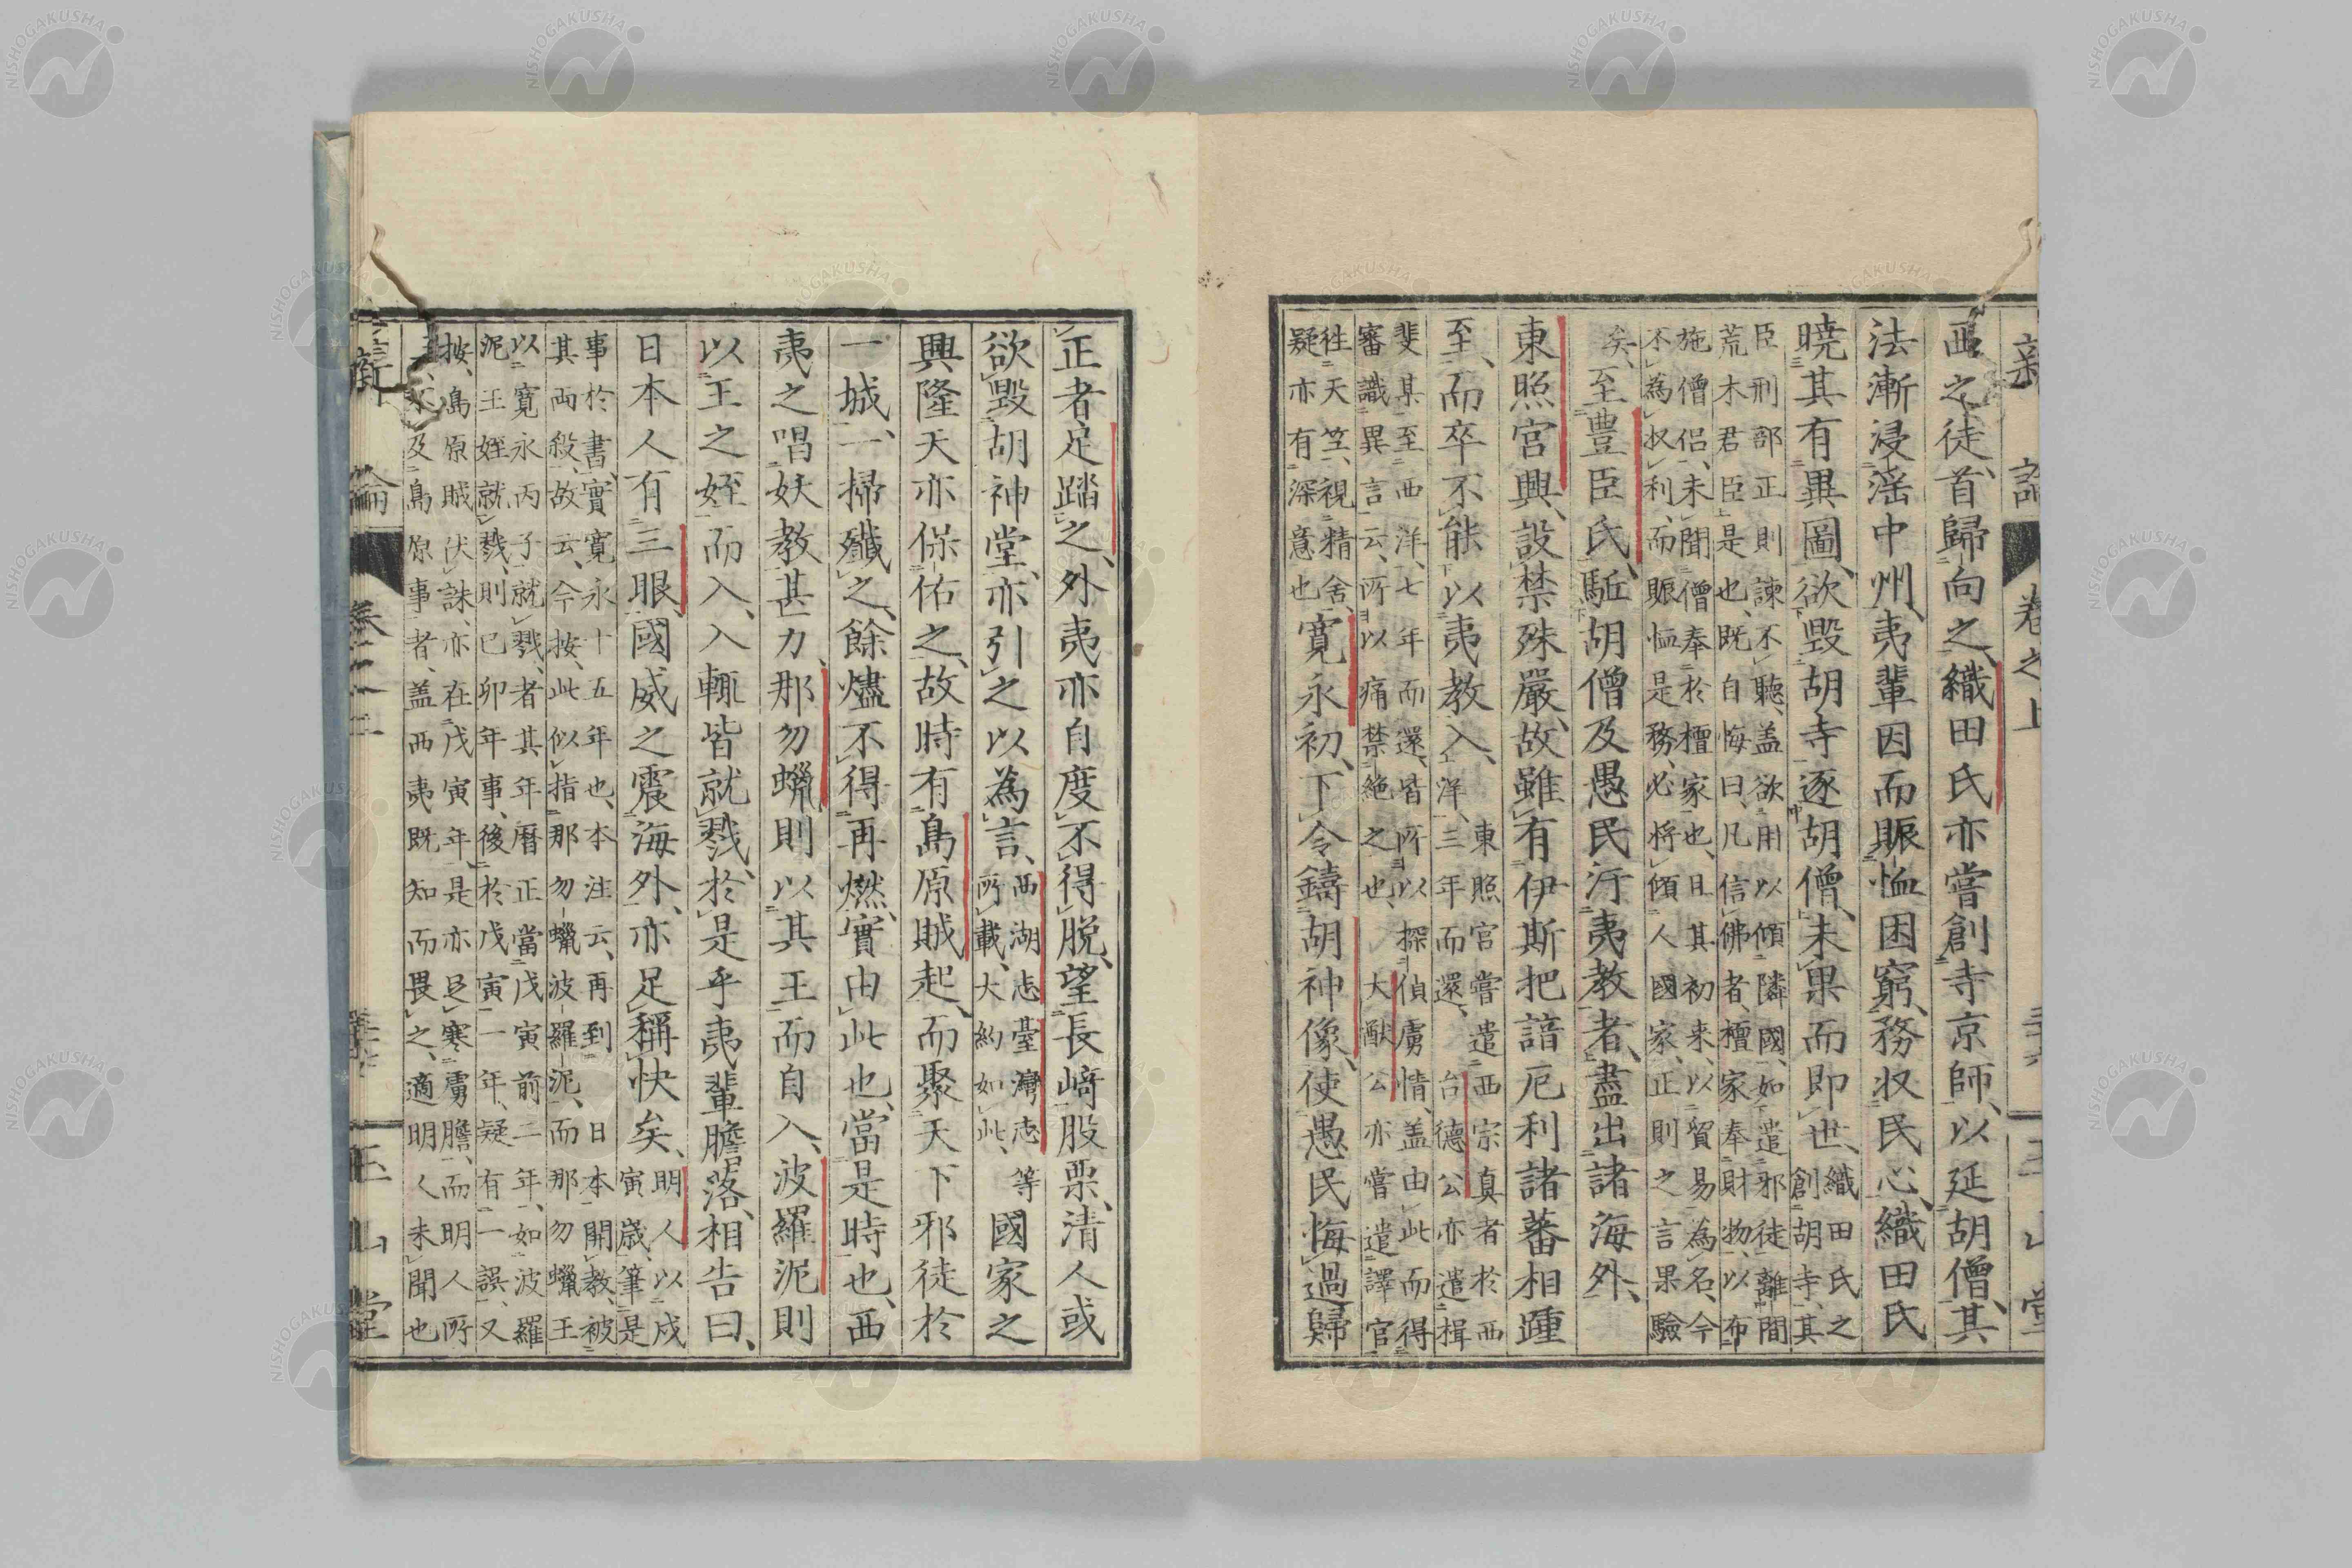 新論 卷之上 玉山堂
西之徒、首歸向之、織田氏亦嘗創寺京師、以延胡僧、其
法漸浸滛中州、夷輩因而賑恤困窮、務収民心、織田氏
曉其有異圖、欲毀胡寺逐胡僧、未果而即世、
織田氏之
創胡寺、其
臣刑部正則諫不聽、盖欲用以傾隣國、如遣邪徒離間
荒木君臣是也、既自悔曰、凡信佛者、檀家奉財物、以布
施僧侶、未聞僧奉於檀家也、且其初来、以貿易為名、今
不為収利、而賑恤是務、必将傾人國家、正則之言果驗
矣、
至豊臣氏、駈胡僧及愚民汙夷教者、盡出諸海外、
東照宮興、設禁殊嚴、故雖有伊斯把諳厄利諸蕃相踵
至、而卒不能以夷教入、
東照宮嘗遣西宗真者於西
洋、三年而還、台德公亦遣揖
斐某至西洋、七年而還、皆所以探偵虜情、盖由此而得
審識異言云、所以痛禁絶之也、大猷公亦嘗遣譯官
徃天竺、視精舍、
疑亦有深意也
寛永初、下令鑄胡神像、使愚民悔過歸
正者足踏之、外夷亦自度不得脱、望長﨑股栗、清人或
欲毀胡神堂、亦引之以為言、
西湖志臺灣志等
所載、大約如此、
國家之
興隆天亦保佑之、故時有島原賊起、而聚天下邪徒於
一城、一掃殲之、餘燼不得再燃、實由此也、當是時也、西
夷之唱妖教甚力、那勿蠟則以其王而自入、波羅泥則
以王之姪而入、入輒皆就戮、於是乎夷輩膽落、相告曰、
日本人有三眼、國威之震海外、亦足稱快矣、
明人以戊
寅歳、筆是
事於書、實寛永十五年也、本注云、再到日本開教、被
其両殺、故云、今按、此似指那勿蠟波羅泥、而那勿蠟王
以寛永丙子就戮、者其年年暦正當戊寅前二年、如波羅
泥王姪就戮、則己卯年事、後於戊寅一年、疑有一誤、又
按、島原賊伏誅、亦在戊寅年、是亦足寒虜膽、而明人所
及島原事者、盖西夷既知而畏之、適明人未聞也
新論 玉山堂